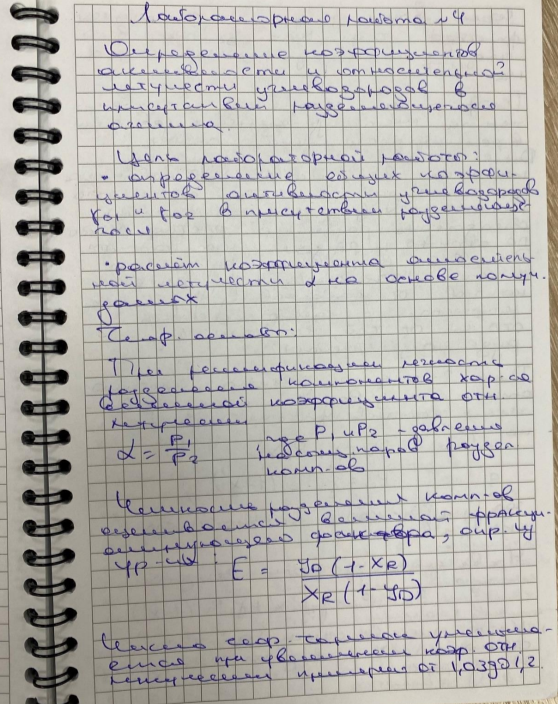 Лабораторная работа №4
Определение коэффициентов
активности и относительной
летучести углеводородов в
присутствии разделяющегося
агента.
Цель лабораторной работы:
• определение общих коэффи-
циентов активности углеводородов
γ01 и γ02 в присутствии разделяюще-
гося
• расчёт коэффициента относитель-
ной летучести α на основе получ.
данных
Теор. основы:
При ректификации легкость
разделения компонентов хар-ся
величиной коэффициента отн.
летучести
α = P₁/P₂ где P₁ и P₂ - давления
насыщ. паров раздел
комп-ов
Чёткость разделения комп-ов
оценивается величиной фракци-
онирующего фактора, опр. из
ур-ия: E = yD (1 - xR) / xR (1 - yD)
Число теор. тарелок уменьша-
ется при увеличении коэф. отн.
летучести примерно от 1,03 до 1,2.